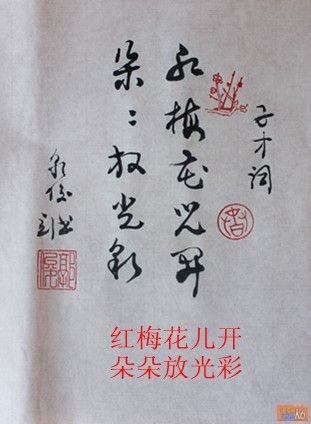 子才词
红梅花儿开
朵〻放光彩
红梅花儿开
朵朵放光彩
K6